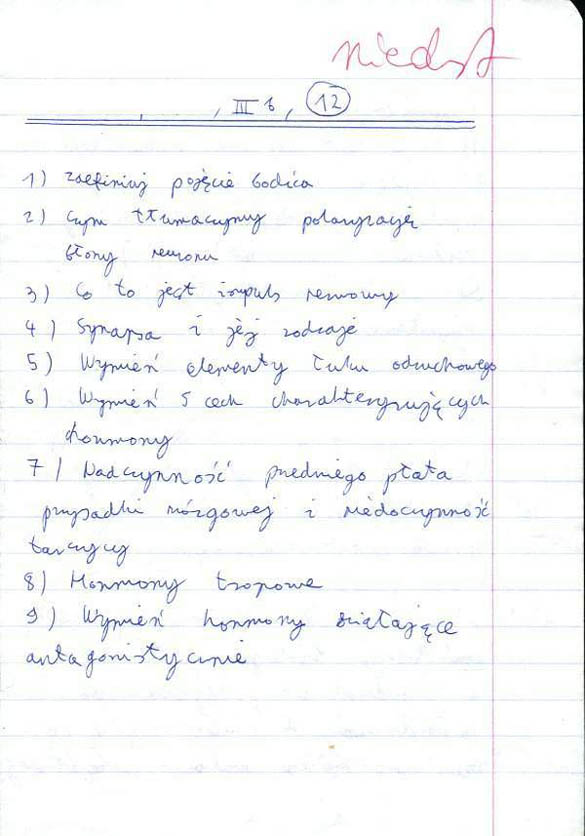 niedst
, III b, 12
1) zdefiniuj pojęcie bodźca
2) czym tłumaczymy polaryzację
błony neuronu
3) Co to jest impuls nerwowy
4) Synapsa i jej rodzaje
5) Wymień elementy łuku odruchowego
6) Wymień 5 cech charakteryzujących
hormony
7) Nadczynność przedniego płata
przysadki mózgowej i niedoczynność
tarczycy
8) Hormony tropowe
9) Wymień hormony działające
antagonistycznie